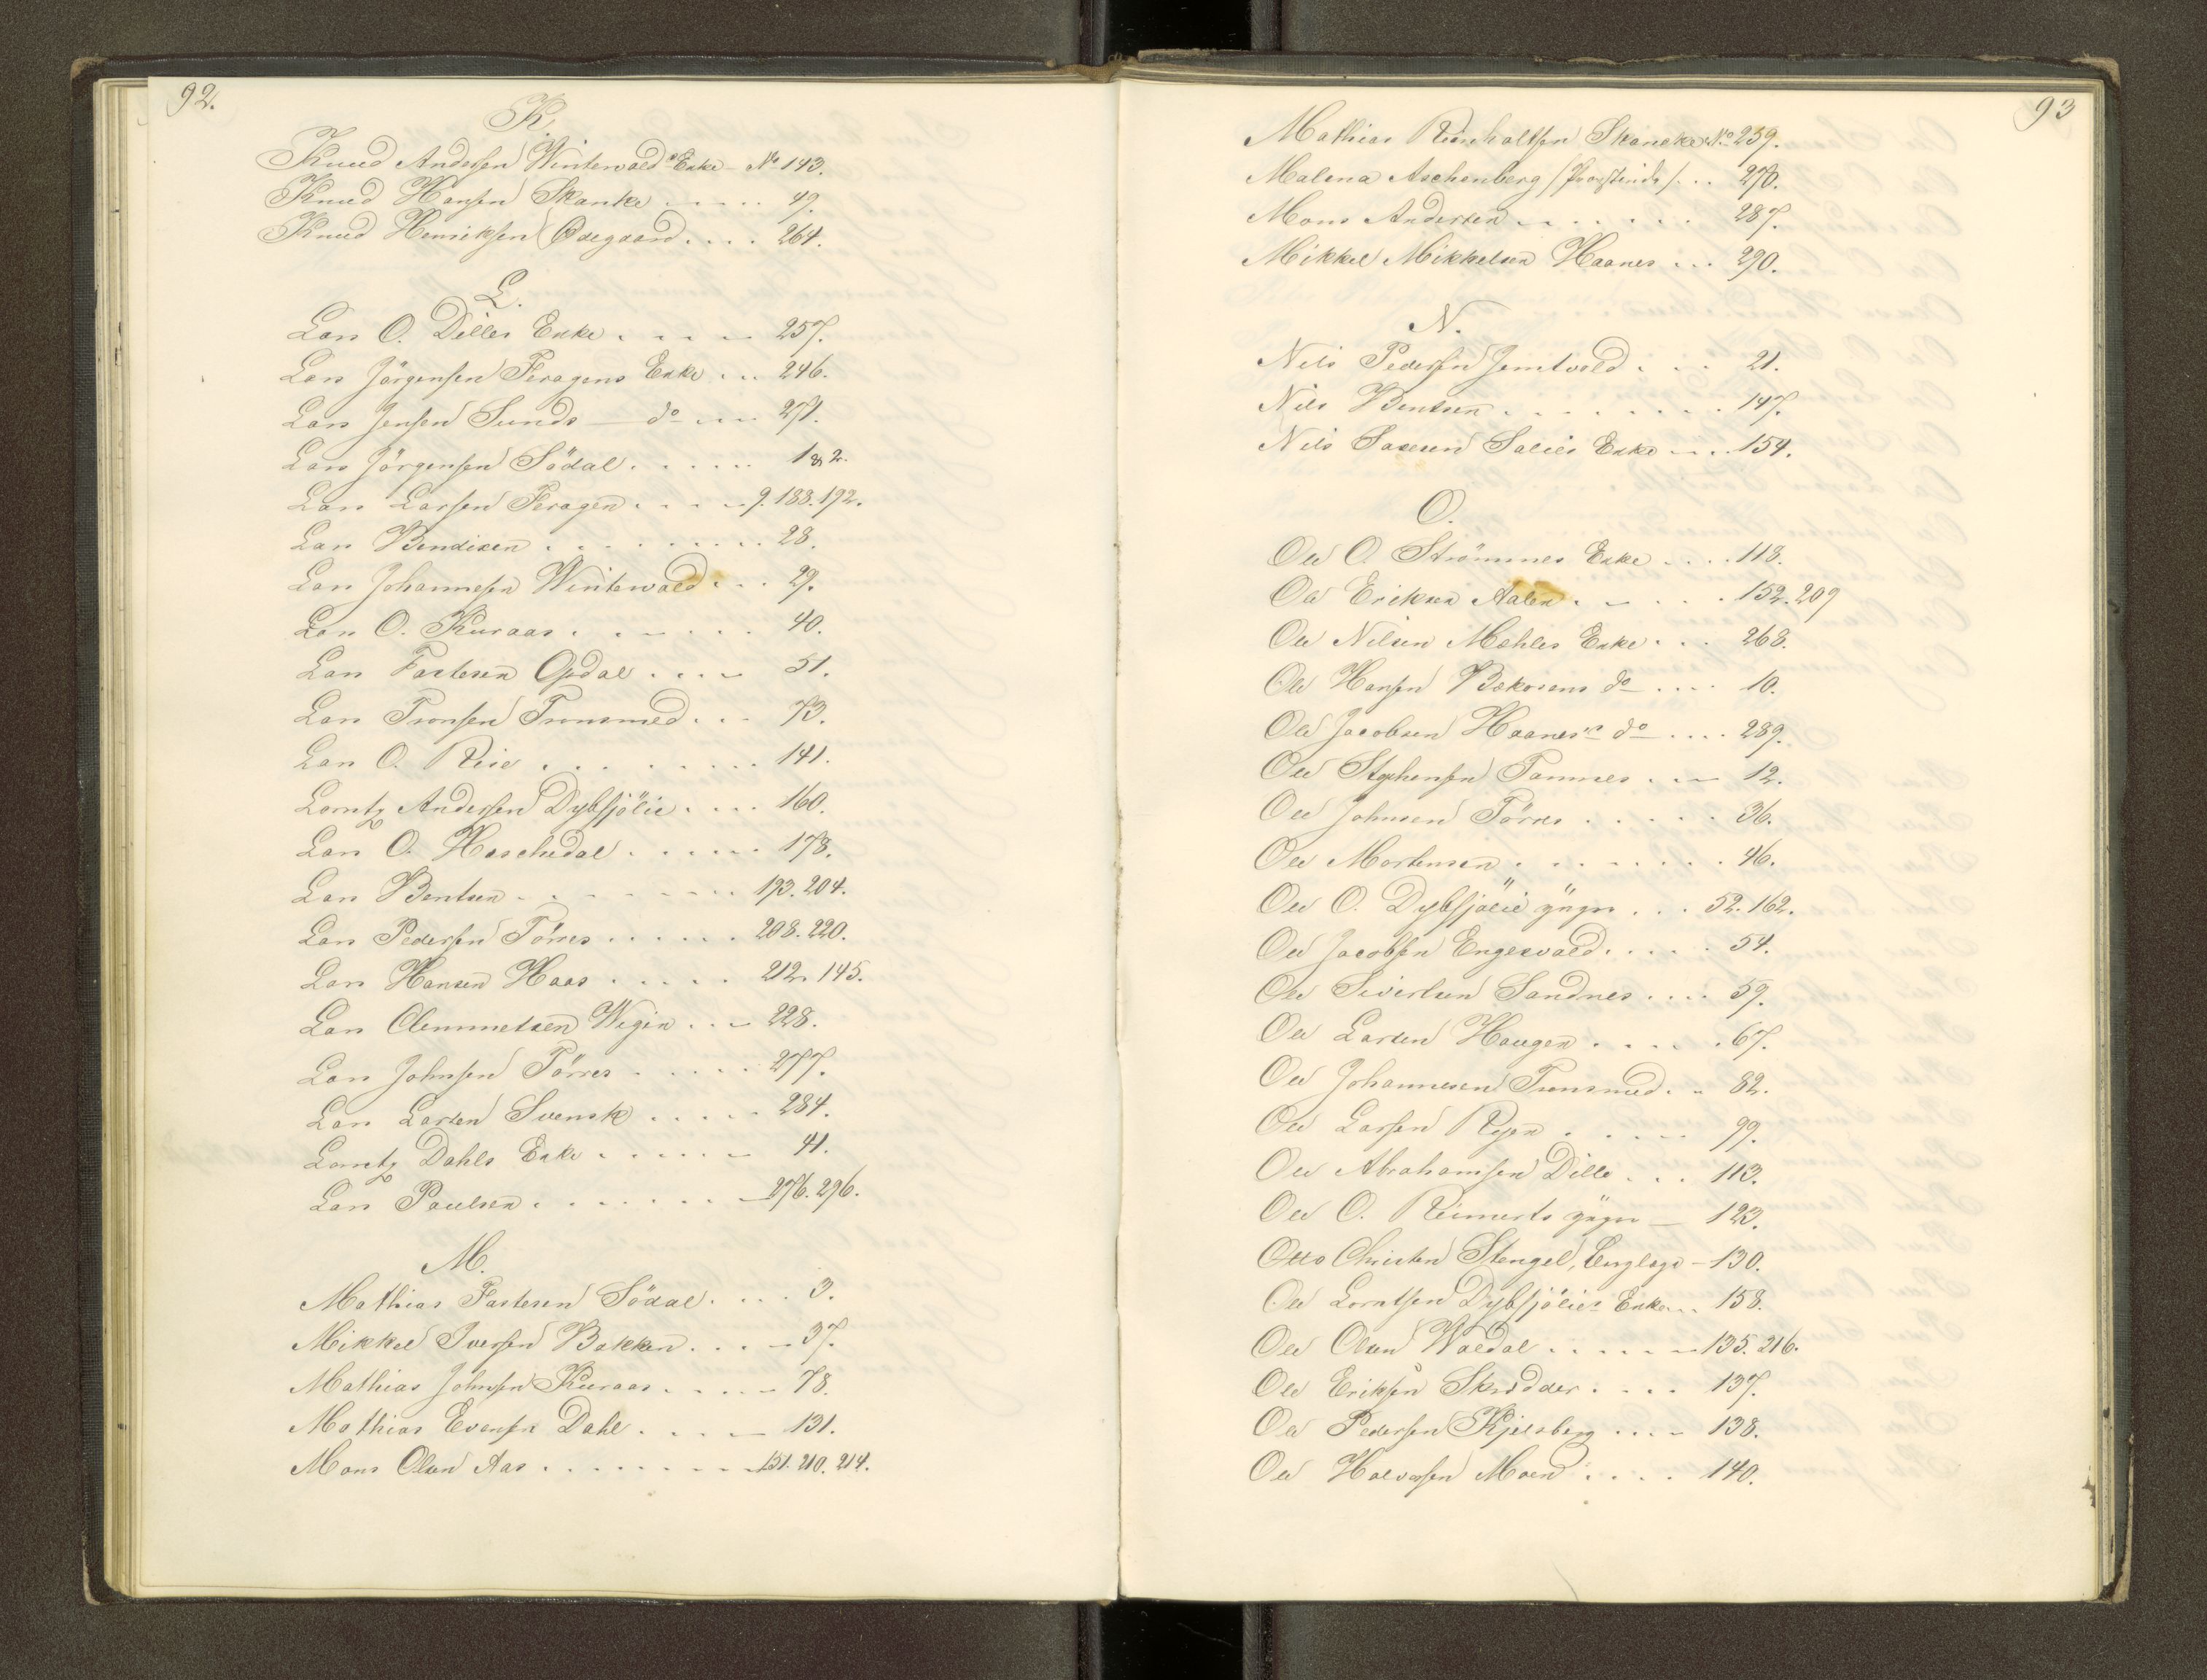 92.
K.
Knud Andersen Winterwolds Enke - No 143.
Knud Hansen Skanke . . . . . 49.
Knud Henriksen Ødegaard . . . . 264.
L.
Lars O. Dilles Enke . . . . . 257.
Lars Jörgensen Feragens Enke . . . 246.
Lars Jensen Sunds — do . . . . 271.
Lars Jörgensen Södal . . . . . . 1 & 2.
Lars Larsen Feragen . . . . . 9. 188. 192.
Lars Bendixen . . . . . . . . . 28.
Lars Johannesen Winterwold . . . 29.
Lars O. Kuraas . . . . . . . 40.
Lars Fastesen Opdal . . . . 51.
Lars Tronsen Tronsmed . . . 73.
Lars O. Rise . . . . . . . . 141.
Lorntz Andersen Dybfjölie . . . . 160.
Lars O. Haschedal . . . . . . 178.
Lars Bentsen . . . . . . . . 193. 204.
Lars Pedersen Törres . . . . . . 208. 220.
Lars Hansen Haas . . . . . . 212. 145.
Lars Clemmetsen Wigen . . . 228.
Lars Johnsen Törres . . . . . . 277.
Lars Larsen Svensk . . . . . 284.
Lorntz Dahls Enke . . . . . . 41.
Lars Paulsen . . . . . . . . 276. 296.
M.
Mathias Fastesen Södal . . . . 3.
Mikkel Iversen Bakken . . . . 37.
Mathias Johnsen Kuraas . . . . . 78.
Mathias Evensen Dahl . . . . 131.
Mons Olsen Aas . . . . . . . . 151. 210. 214.
93
Mathias Reinholtsen Skancke No 259.
Malena Aschenberg / Provstinde / . . . 270.
Mons Andersen . . . . . . . 287.
Mikkel Mikkelsen Haanes . . . 290.
N.
Nils Pedersen Jemtvold . . . 21.
Nils Bentsen . . . . . . . . 147.
Nils Saxesen Enke . . . 154.
O.
Ole O. Strömmes Enke . . . . 118.
Ole Eriksen Aalen . . . . . . 152. 209
Ole Nilsen Mæhles Enke . . . 268.
Ole Hansen Bækosens do . . . . 10.
Ole Jacobsen Haanes's do . . . . 289.
Ole Stephensen Tamnes . . . 12.
Ole Johnsen Törres . . . . . . 36.
Ole Mortensen . . . . . . . . 46.
Ole O. Dybfjölie yngre . . . 52. 162.
Ole Jacobsen Engesvold . . . . . 54.
Ole Sivertsen Sandnes . . . . 59.
Ole Larsen Haugen . . . . . 67.
Ole Johannesen Tronsmed . . 82.
Ole Larsen Ryen . . . . . . 99.
Ole Abrahamsen Dille . . . 113.
Ole O. Reinerts yngre — 123.
Otto Christen Stengel, Berglæge — 130.
Ole Lorntsen Dybfjölies Enke . . . 158.
Ole Olsen Woldal . . . . . . 135. 216.
Ole Eriksen Skrædder . . . . 137.
Ole Pedersen Kjelsberg . . . . 138.
Ole Halvorsen Moen . . . . 140.